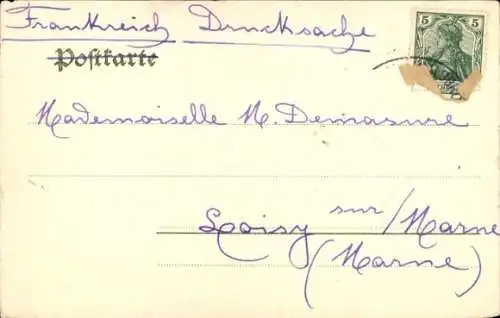 Frankreich Drucksache
5 5
Postkarte
Mademoiselle M. Demasure
Loisy sur/Marne
(Marne)